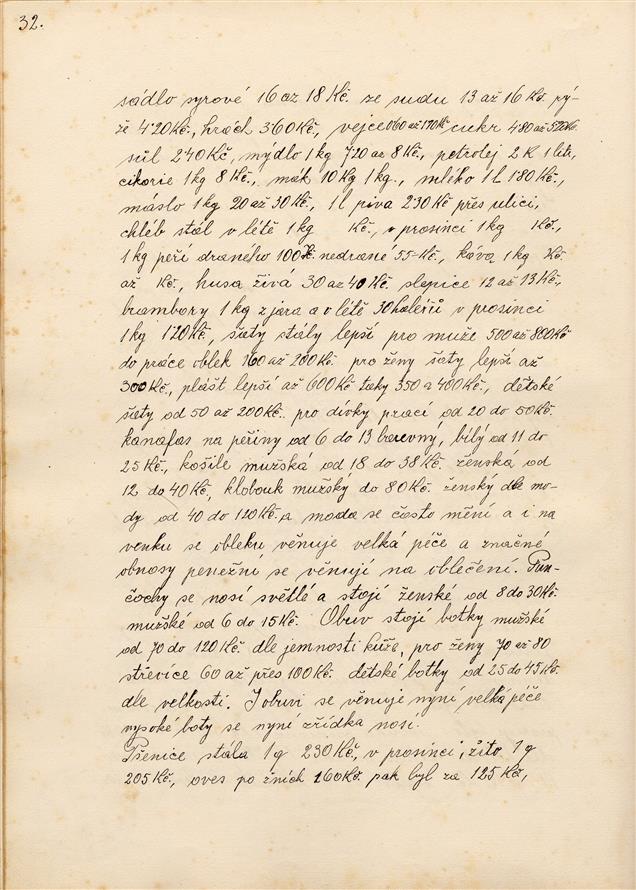 32.
sádlo syrové 16 až 18 Kč. ze sudu 13 až 16 Kč. rý-
že 4·20 Kč., hrách 3·60 Kč., vejce 0·60 až 1·90 Kč cukr 4·80 až 5·20 Kč.
sůl 2·40 Kč, mýdlo 1 kg 7·20 až 8 Kč., petrolej 2 K 1 litr,
cikorie 1 kg 8 Kč., mák 10 Kg 1 kg., mléko 1 l 1·80 Kč.,
máslo 1 kg 20 až 30 Kč., 1 l piva 2·30 Kč přes ulici,
chléb stál v létě 1 kg Kč., v prosinci 1 kg Kč.,
1 kg peří draného 100 K. nedrané 55·- Kč., káva 1 kg Kč.
až Kč., husa živá 30 až 40 Kč. slepice 12 až 13 Kč.,
brambory 1 kg z jara a v létě 30 haléřů v prosinci
1 kg 1·20 Kč., šaty stály lepší pro muže 500 až 800 Kč
do práce oblek 160 až 200 Kč. pro ženy šaty lepší až
300 Kč., plášť lepší až 600 Kč. taky 350 a 400 Kč., dětské
šaty od 50 až 200 Kč. pro dívky prací od 20 do 50 Kč.
kanafas na peřiny od 6 do 13 barevný, bílý od 11 do
25 Kč., košile mužská od 18 do 38 Kč. ženská od
12 do 40 Kč, klobouk mužský do 80 Kč. ženský dle mo-
dy od 40 do 120 Kč. a moda se často mění a i na
venku se obleku věnuje velká péče a značné
obnosy peněžní se věnují na oblečení. Pun-
čochy se nosí světlé a stojí ženské od 8 do 30 Kč.
mužské od 6 do 15 Kč. Obuv stojí botky mužské
od 70 do 120 Kč. dle jemnosti kůže, pro ženy 70 až 80
střevíce 60 až přes 100 Kč. dětské botky od 25 do 45 Kč.
dle velkosti. I obuvi se věnuje nyní velká péče
vysoké boty se nyní zřídka nosí.
Pšenice stála 1 q 230 Kč., v prosinci, žito 1 q
205 Kč., oves po žních 160 Kč. pak byl za 125 Kč,